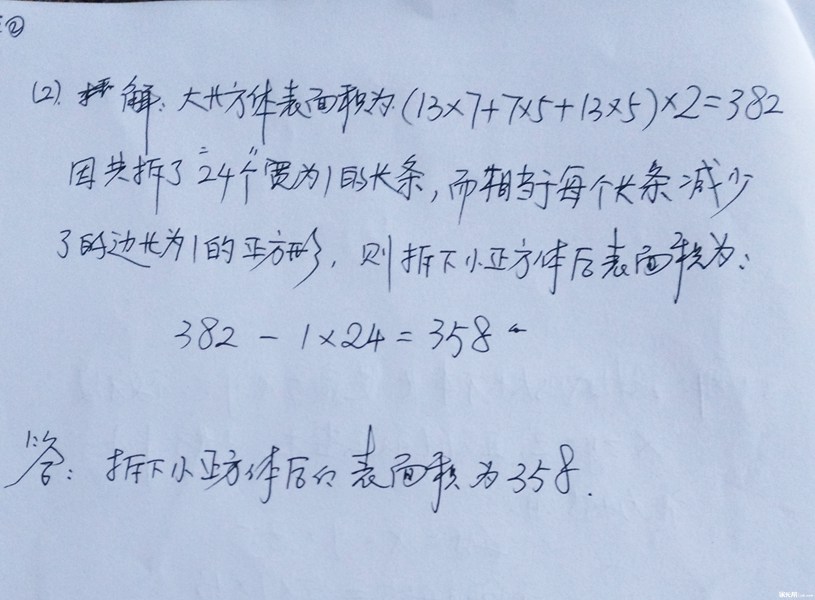 ②
(2). 解：大长方体表面积为(13×7+7×5+13×5)×2=382
因共拆了"24个"宽为1的长条，而相当于每个长条减少
了的边长为1的正方形，则拆下小正方体后表面积为：
382 - 1×24 = 358
答：拆下小正方体后的表面积为358.